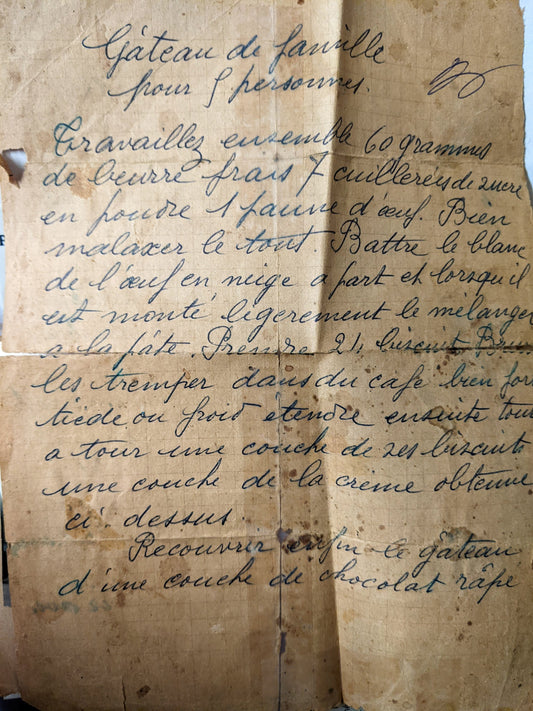 Gâteau de famille
pour 5 personnes.
Travaillez ensemble 60 grammes
de beurre frais 7 cuillerées de sucre
en poudre 1 jaune d'œuf. Bien
malaxer le tout. Battre le blanc
de l'œuf en neige a part et lorsqu'il
est monté légèrement le mélanger
a la pâte. Prendre 24 biscuits Brun
les tremper dans du café bien fort
tiède ou froid étendre ensuite tour
a tour une couche de ses biscuits
une couche de la crème obtenue
ci-dessus
Recouvrir enfin le gâteau
d'une couche de chocolat râpé